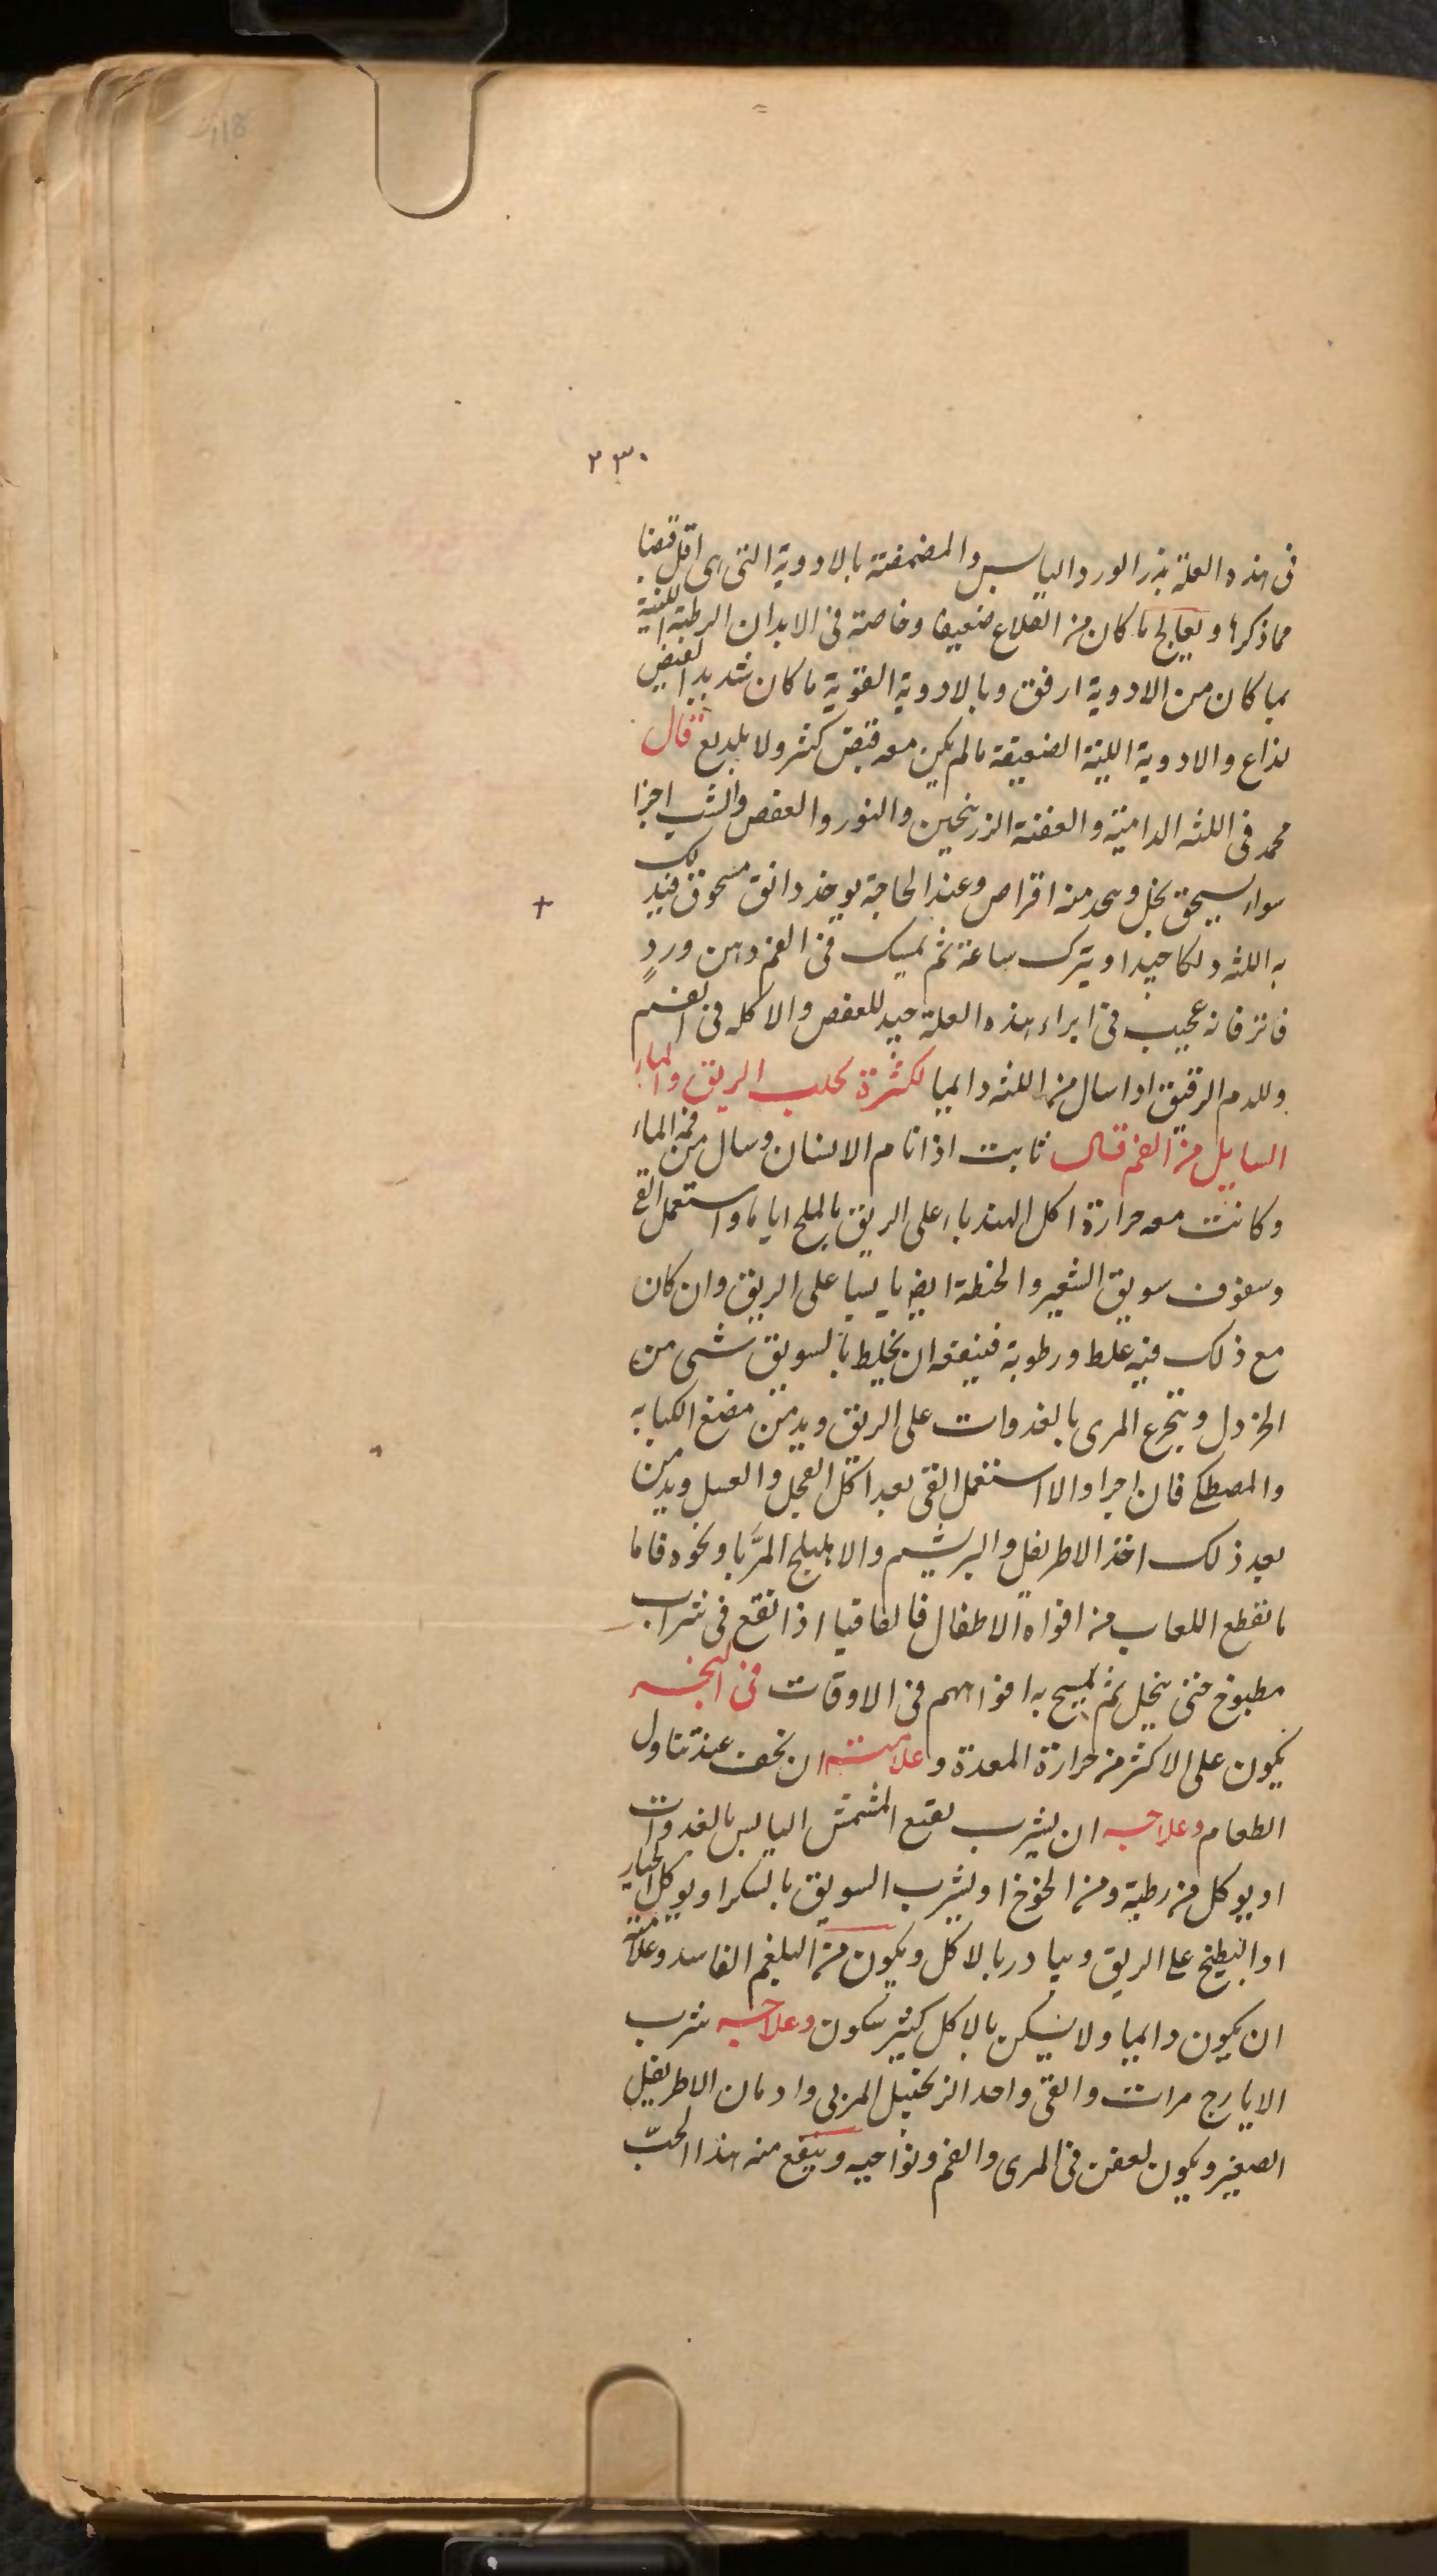 118
٢٣٠
فى هذه العلة بزر الورد اليابس والمضمضة بالادوية التى هى اقل قبضا
مما ذكرنا ويعالج ما كان من القلاع ضعيفا وخاصة فى الابدان الرطبة اللينة
بما كان من الادوية ارفق وبالادوية القوية ما كان شديد القبض
لذاع والادوية اللينة الضعيفة ما لم يكن معه قبض كثير ولا تلديع قال
محمد فى اللثه الدامية والعفنة الزرنيخين والنوره والعفص والشب اجزا
سواء يسحق بخل ويتخذ منه اقراص وعند الحاجة يوخذ دانق مسحوق فيدلك
به اللثه دلكا جيدا ويترك ساعة ثم يمسك فى الفم دهن وردٍ
فاتر فانه عجيب فى ابراء هذه العلة جيد للعفص والاكله فى الفم
وللدم الرقيق اذا سال من اللثه دايما لكثرة تحلب الريق والماء
السايل من الفم قال ثابت اذا نام الانسان وسال من فمه الماء
وكانت معه حرارة اكل الهندباء على الريق بالملح اياما واستعمل القى
وسفوف سويق الشعير والحنطة ايضا يابسا على الريق وان كان
مع ذلك فيه غلط ورطوبة فينفعه ان يخلط بالسويق شى من
الخردل ويتجرع المرى بالغدوات على الريق ويدمن مضغ الكبابه
والمصطكى فان اجزا والا استعمل القى بعد اكل الفجل والعسل ويدمن
بعد ذلك اخذ الاطريفل والبرشيم والاهليلج المرَّبا ونحوه فاما
ما نقطع اللعاب من افواه الاطفال فالقاقيا اذا نقع فى شراب
مطبوخ حتى ينحل ثم يمسح به افواههم فى الاوقات فى البخر
يكون على الاكثر من حرارة المعدة وعلامته ان يخف عند تناول
الطعام وعلاجه ان يشرب نقيع المشمش اليابس بالغدوات
او يوكل من رطبة ومن الخوخ او يشرب السويق بالسكر او يوكل الخيار
او البطيخ على الريق ويبادر بالاكل ويكون من البلغم الفاسد وعلامته
ان يكون دايما ولا يسكن بالاكل كثير سكون وعلاجه شرب
الايارج مرات والقى واخذ الزنجبيل المربى وادمان الاطريفل
الصغير ويكون لعفن فى المرى والفم ونواحيه وينفع منه هذا الحبّ